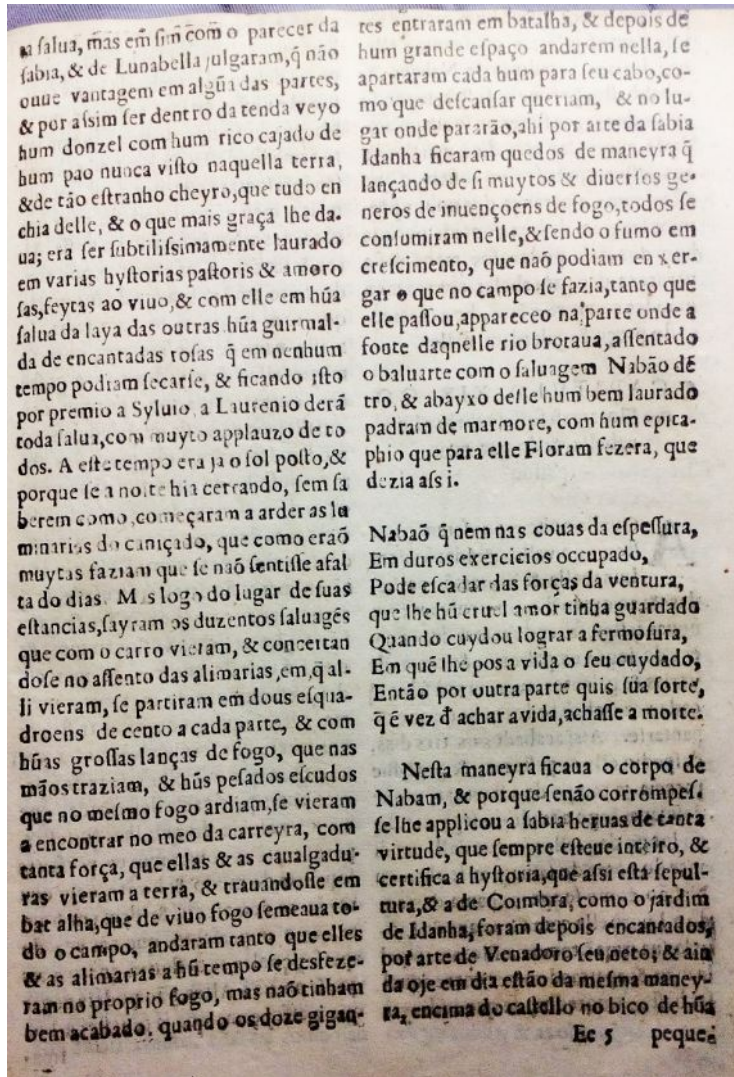 a ſalua, mas em ſim com o parecer da
ſabia, & de Lunabella julgaram, q̃ não
ouue vantagem em algũa das partes,
& por aſsim ſer dentro da tenda veyo
hum donzel com hum rico cajado de
hum pao nunca viſto naquella terra,
& de tão eſtranho cheyro, que tudo en
chia delle, & o que mais graça lhe da-
ua; era ſer ſubtiliſsimamente laurado
em varias hyſtorias paſtoris & amoro
ſas, feytas ao viuo, & com elle em hũa
ſalua da laya das outras hũa guirnal-
da de encantadas roſas q̃ em nenhum
tempo podiam ſecarſe, & ficando iſto
por premio a Syluio, a Laurenio derã
toda ſalua, com muyto applauzo de to
dos. A eſte tempo era ja o ſol poſto, &
porque ſe a noite hia cerrando, ſem ſa
berem como, começaram a arder as lu
minarias do caniçado, que como eraõ
muytas faziam que ſe naõ ſentiſſe a fal
ta do dias. M s logo do lugar de ſuas
eſtancias, ſayram os duzentos ſaluagẽs
que com o carro vieram, & concertan
doſe no aſſento das alimarias, em, q̃ al-
li vieram, ſe partiram em dous eſqua-
droens de cento a cada parte, & com
hũas groſſas lanças de fogo, que nas
mãos traziam, & hũs peſados eſcudos
que no meſmo fogo ardiam, ſe vieram
a encontrar no meo da carreyra, com
tanta força, que ellas & as caualgadu-
ras vieram a terra, & trauandoſſe em
bat alha, que de viuo fogo ſemeaua to-
do o campo, andaram tanto que elles
& as alimarias a hũ tempo ſe desfeze-
ram no proprio fogo, mas naõ tinham
bem acabado, quando os doze gigan-
tes entraram em batalha, & depois de
hum grande eſpaço andarem nella, ſe
apartaram cada hum para ſeu cabo, co-
mo que deſcanſar queriam, & no lu-
gar onde pararão, ahi por arte da ſabia
Idanha ficaram quedos de maneyra q̃
lançando de ſi muytos & diuerſos ge-
neros de inuençoens de fogo, todos ſe
conſumiram nelle, & ſendo o fumo em
creſcimento, que naõ podiam en xer-
gar o que no campo ſe fazia, tanto que
elle paſſou, appareceo na parte onde a
fonte daquelle rio brotaua, aſſentado
o baluarte com o ſaluagem Nabão dẽ
tro, & abayxo delle hum bem laurado
padram de marmore, com hum epita-
phio que para elle Floram fezera, que
dezia aſs i.
Nabaõ q̃ nem nas couas da eſpeſſura,
Em duros exercicios occupado,
Pode eſcadar das forças da ventura,
que lhe hũ cruel amor tinha guardado
Quando cuydou lograr a fermoſura,
Em quẽ lhe pos a vida o ſeu cuydado,
Então por outra parte quis ſua ſorte,
q̃ ẽ vez đ achar a vida, achaſſe a morte.
Neſta maneyra ficaua o corpo de
Nabam, & porque ſenão corrompeſ-
ſe lhe applicou a ſabia heruas de tanta
virtude, que ſempre eſteue inteiro, &
certifica a hyſtoria, que aſsi eſta ſepul-
tura, & a de Coimbra, como o jardim
de Idanha, foram depois encantados,
por arte de Venadoro ſeu neto; & ain
da oje em dia eſtão da meſma maney-
ra, encima do caſtello no bico de hũa
Ee 5 peque-